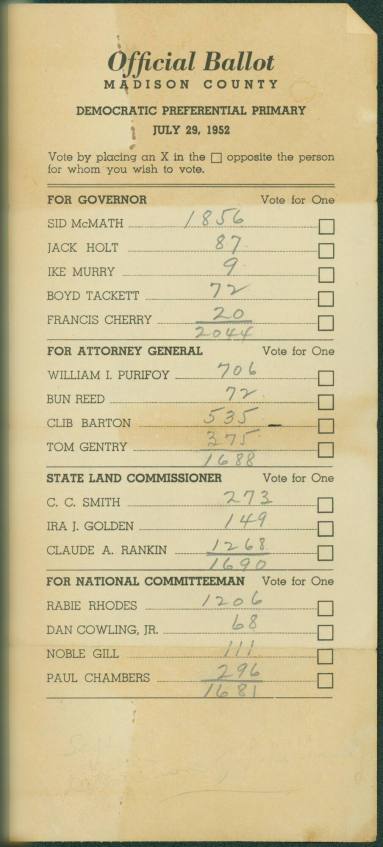 Official Ballot
MADISON COUNTY
DEMOCRATIC PREFERENTIAL PRIMARY
JULY 29, 1952
Vote by placing an X in the □ opposite the person
for whom you wish to vote.
FOR GOVERNOR Vote for One
SID McMATH 1856
JACK HOLT 87
IKE MURRY 9
BOYD TACKETT 72
FRANCIS CHERRY 20
2044
FOR ATTORNEY GENERAL Vote for One
WILLIAM I. PURIFOY 706
BUN REED 72
CLIB BARTON 535
TOM GENTRY 375
1688
STATE LAND COMMISSIONER Vote for One
C. C. SMITH 273
IRA J. GOLDEN 149
CLAUDE A. RANKIN 1268
1690
FOR NATIONAL COMMITTEEMAN Vote for One
RABIE RHODES 1206
DAN COWLING, JR. 68
NOBLE GILL 111
PAUL CHAMBERS 296
1681